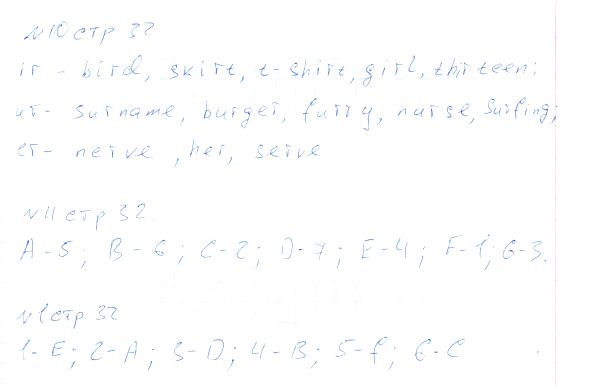 №10 стр 32
ir - bird, skirt, t-shirt, girl, thirteen;
ur- surname, burger, furry, nurse, Surfing;
er- nerve, her, serve
№11 стр 32.
A-5; B-6; C-2; D-7; E-4; F-1; G-3.
№1 стр 32
1-E; 2-A; 3-D; 4-B; 5-f; 6-C